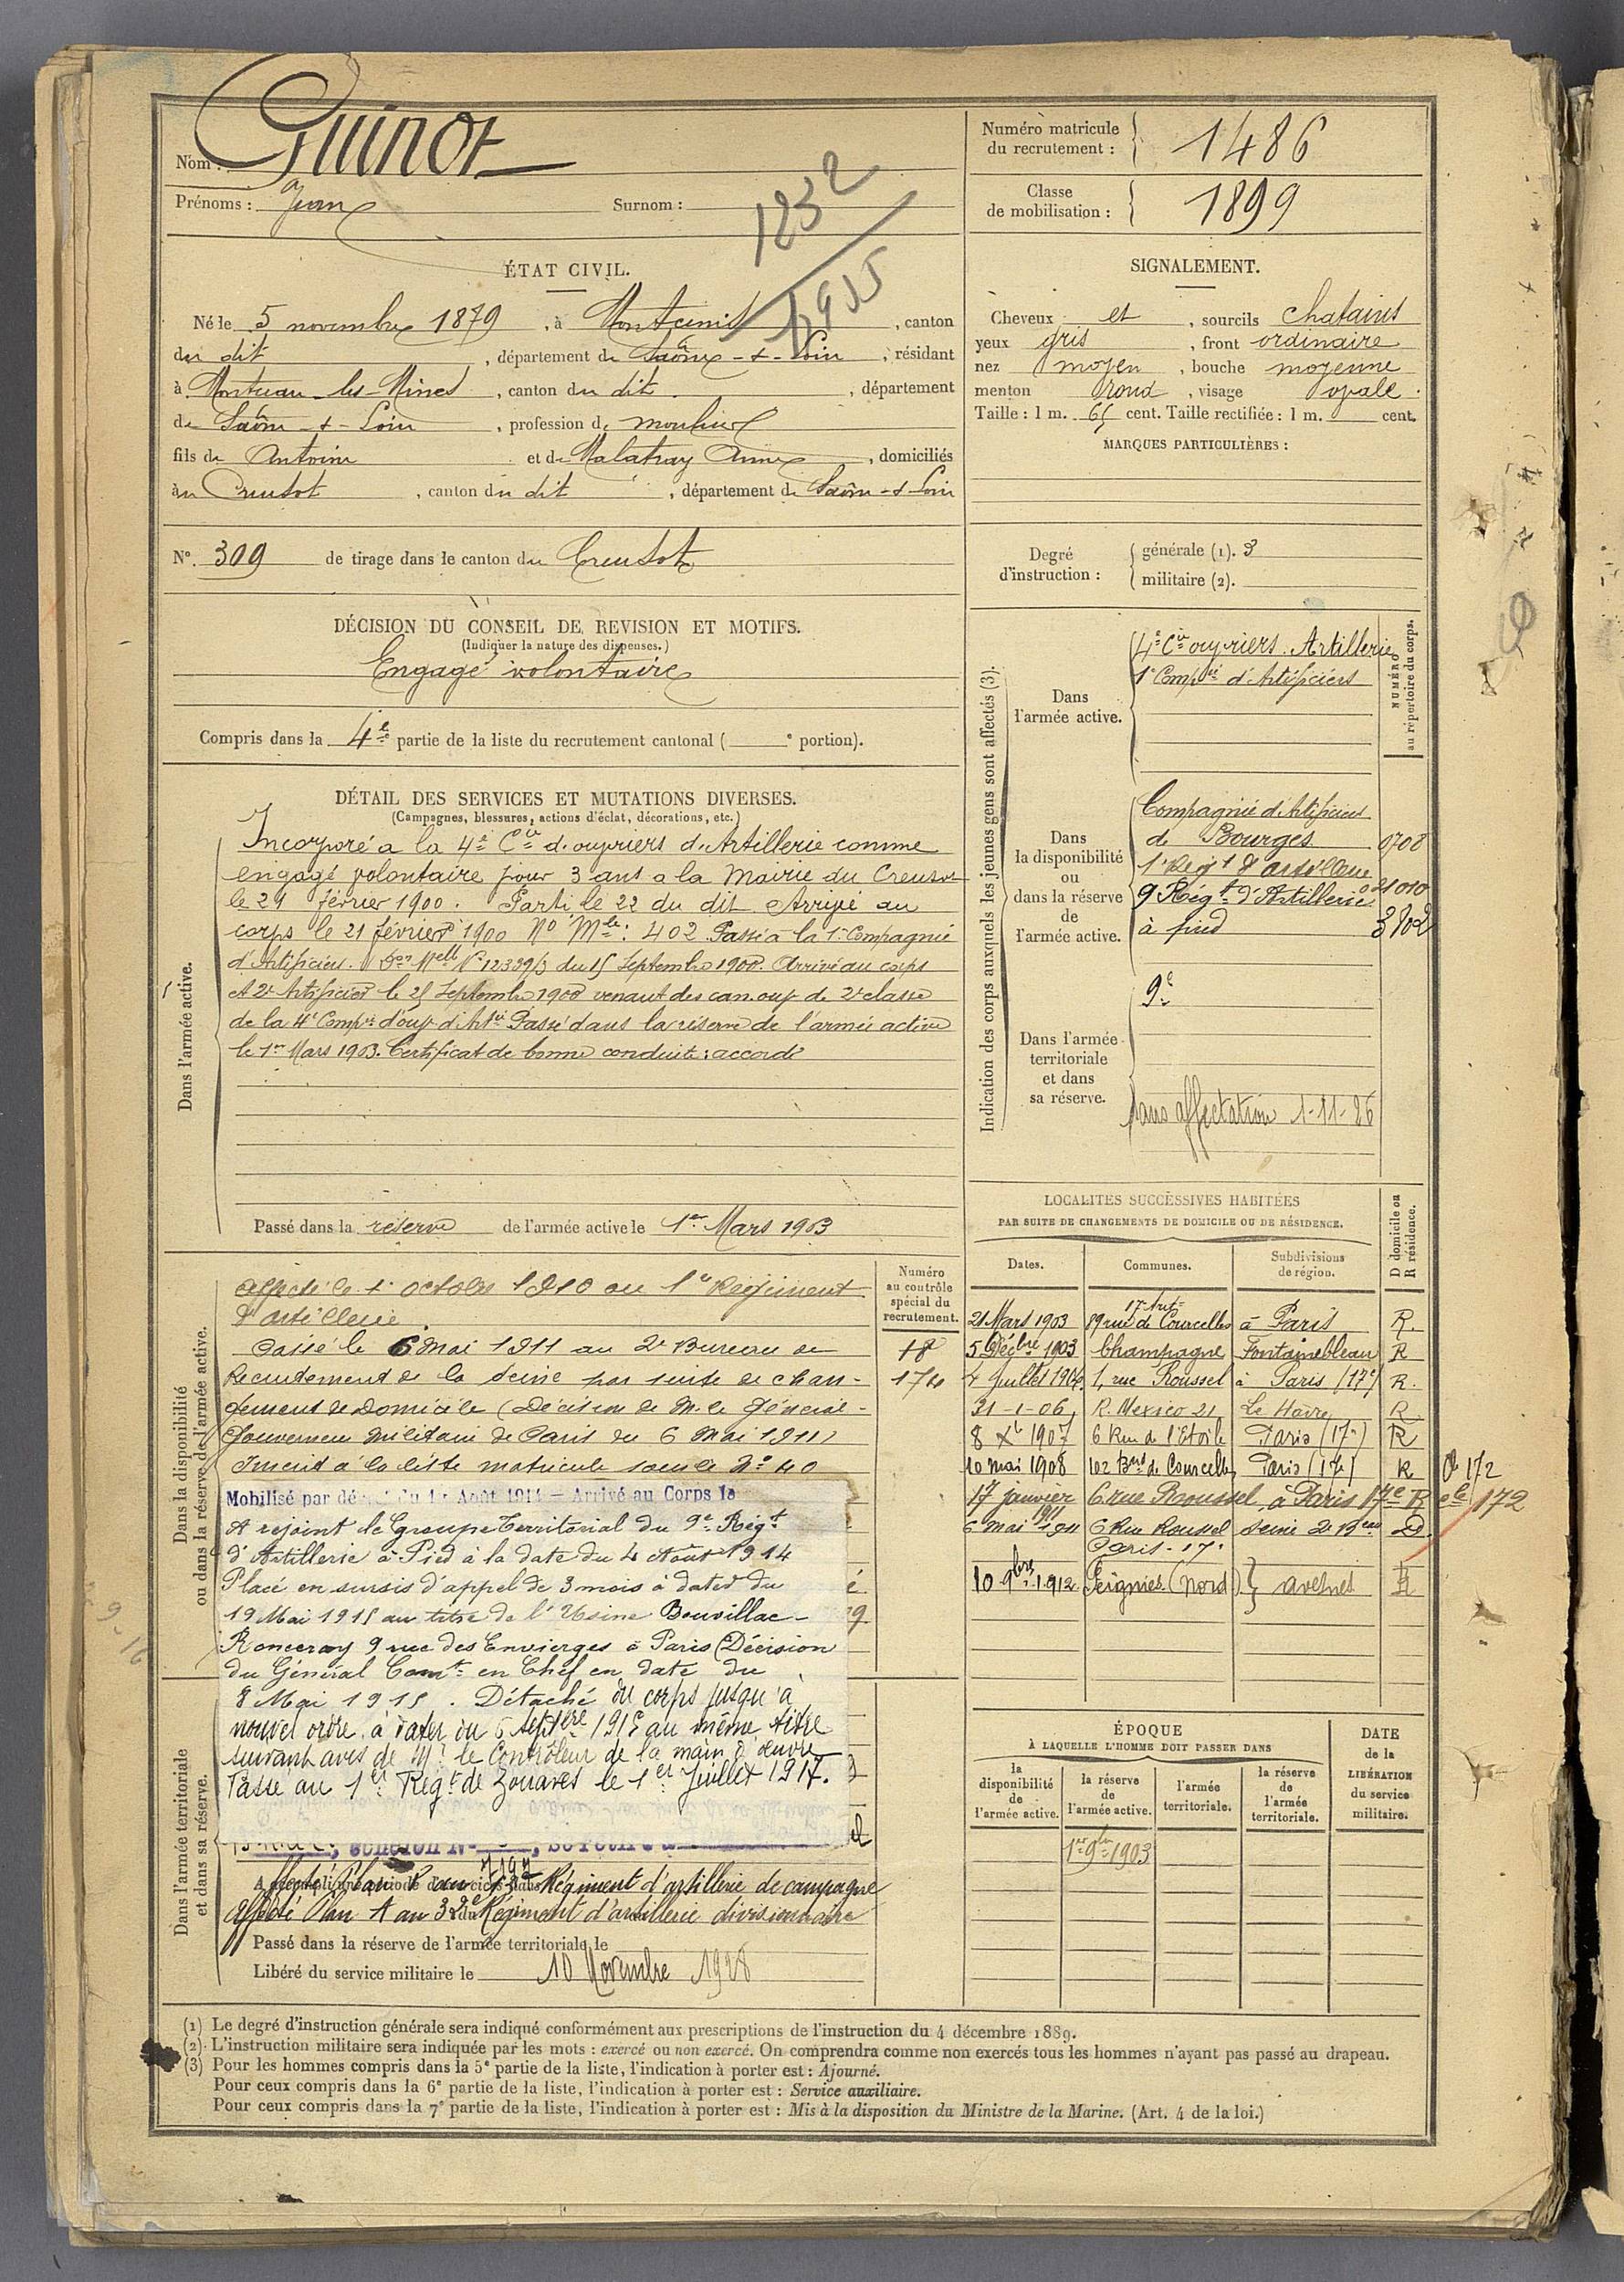 Nom : Guinot
Prénoms : Jean Surnom :
1232
1915
ÉTAT CIVIL.
Né le 5 novembre 1879, à Montcenis, canton
du dit, département de Saône-&-Loire, résidant
à Montceau-les-Mines, canton du dit, département
de Saône-&-Loire, profession de mouleur
fils de Antoine et de Malatray Anne, domiciliés
au Creusot, canton du dit, département de Saône-&-Loire
N° 309 de tirage dans le canton du Creusot
DÉCISION DU CONSEIL DE REVISION ET MOTIFS.
(Indiquer la nature des dispenses.)
Engagé volontaire
Compris dans la 4e partie de la liste du recrutement cantonal ( e portion).
DÉTAIL DES SERVICES ET MUTATIONS DIVERSES.
(Campagnes, blessures, actions d'éclat, décorations, etc.)
Dans l'armée active.
Incorporé à la 4e Cie d'ouvriers d'Artillerie comme
engagé volontaire pour 3 ans a la Mairie du Creusot
le 21 février 1900. Parti le 22 du dit Arrivé au
corps le 21 février 1900 No Mle : 402 Passé à la 1e Compagnie
d'Artificiers. N° 12339/3 du 15 Septembre 1900. Arrivé au corps
et 2e Artificier le 25 Septembre 1900 venant des can. ouv. de 2e classe
de la 4e Compie d'ouv. d'Artie Passé dans la réserve de l'armée active
le 1er Mars 1903. Certificat de bonne conduite : accordé
Passé dans la réserve de l'armée active le 1er Mars 1903
Dans la disponibilité
ou dans la réserve de l'armée active.
Numéro
au contrôle
spécial du
recrutement.
18
174
affecté le 1er octobre 1910 au 1er Régiment
d'artillerie.
Passé le 6 Mai 1911 au 2e Bureau de
Recrutement de la Seine par suite de chan-
gement de Domicile (Décision de M. le Général-
Gouverneur Militaire de Paris du 6 Mai 1911)
Inscrit à la liste matricule sous le N° 40
Mobilisé par décret du 1er Août 1914 — Arrivé au Corps le
A rejoint le Groupe Territorial du 9e Régt
d'Artillerie à Pied à la date du 4 Août 1914
Placé en sursis d'appel de 3 mois à dater du
19 Mai 1915 au titre de l'Usine Bouvillac-
Ronceray 9 rue des Envierges à Paris (Décision
du Général Comt en Chef en date du
8 Mai 1915. Détaché du corps jusqu'à
nouvel ordre à dater du 5 Septbre 1915 au même titre
suivant avis de Mr le Contrôleur de la main d'œuvre
Passé au 1er Régt de Zouaves le 1er Juillet 1917.
Dans l'armée territoriale
et dans sa réserve.
Régiment d'artillerie de campagne
Affecté Plan A au 32e Régiment d'artillerie divisionnaire
Passé dans la réserve de l'armée territoriale le
Libéré du service militaire le 10 Novembre 1928
Numéro matricule
du recrutement : 1486
Classe
de mobilisation : 1899
SIGNALEMENT.
Cheveux et, sourcils chatains
yeux gris, front ordinaire
nez moyen, bouche moyenne
menton rond, visage ovale.
Taille : 1 m. 65 cent. Taille rectifiée : 1 m. cent.
MARQUES PARTICULIÈRES :
Degré
d'instruction :
générale (1). 3
militaire (2).
Indication des corps auxquels les jeunes gens sont affectés (3).
NUMÉRO
au répertoire du corps.
Dans
l'armée active.
4e Cie ouvriers Artillerie
1e Compie d'Artificiers
Dans
la disponibilité
ou
dans la réserve
de
l'armée active.
Compagnie d'Artificiers
de Bourges 0708
1er Régt d'artillerie
9 Régt d'Artillerie 021010
à pied 3802
Dans l'armée
territoriale
et dans
sa réserve.
9e
sans affectation 1-11-26
LOCALITES SUCCESSIVES HABITÉES
PAR SUITE DE CHANGEMENTS DE DOMICILE OU DE RÉSIDENCE.
D domicile ou
R résidence.
Dates. Communes. Subdivisions
de région.
17e Art.
21 Mars 1903 89 rue de Courcelles à Paris R.
5 Décbre 1903 Champagne Fontainebleau R
4 Juillet 1904 1, rue Roussel à Paris (17e) R.
31-1-06 R. Mexico 21 Le Havre R
8 Xe 1907 6 Rue de l'Etoile Paris (17e) R
10 mai 1908 102 Brd de Courcelles Paris (17e) R 172
17 janvier 1911 6 rue Roussel à Paris 17e R 172
6 mai 1911 6 Rue Roussel Seine 2e Beau D.
Paris - 17e
10 9bre 1912 Feignies (Nord) avesnes R
ÉPOQUE
À LAQUELLE L'HOMME DOIT PASSER DANS
DATE
de la
LIBÉRATION
du service
militaire.
la
disponibilité
de
l'armée active.
la réserve
de
l'armée active.
l'armée
territoriale.
la réserve
de
l'armée
territoriale.
1er 9bre 1903
(1) Le degré d'instruction générale sera indiqué conformément aux prescriptions de l'instruction du 4 décembre 1889.
(2) L'instruction militaire sera indiquée par les mots : exercé ou non exercé. On comprendra comme non exercés tous les hommes n'ayant pas passé au drapeau.
(3) Pour les hommes compris dans la 5e partie de la liste, l'indication à porter est : Ajourné.
Pour ceux compris dans la 6e partie de la liste, l'indication à porter est : Service auxiliaire.
Pour ceux compris dans la 7e partie de la liste, l'indication à porter est : Mis à la disposition du Ministre de la Marine. (Art. 4 de la loi.)